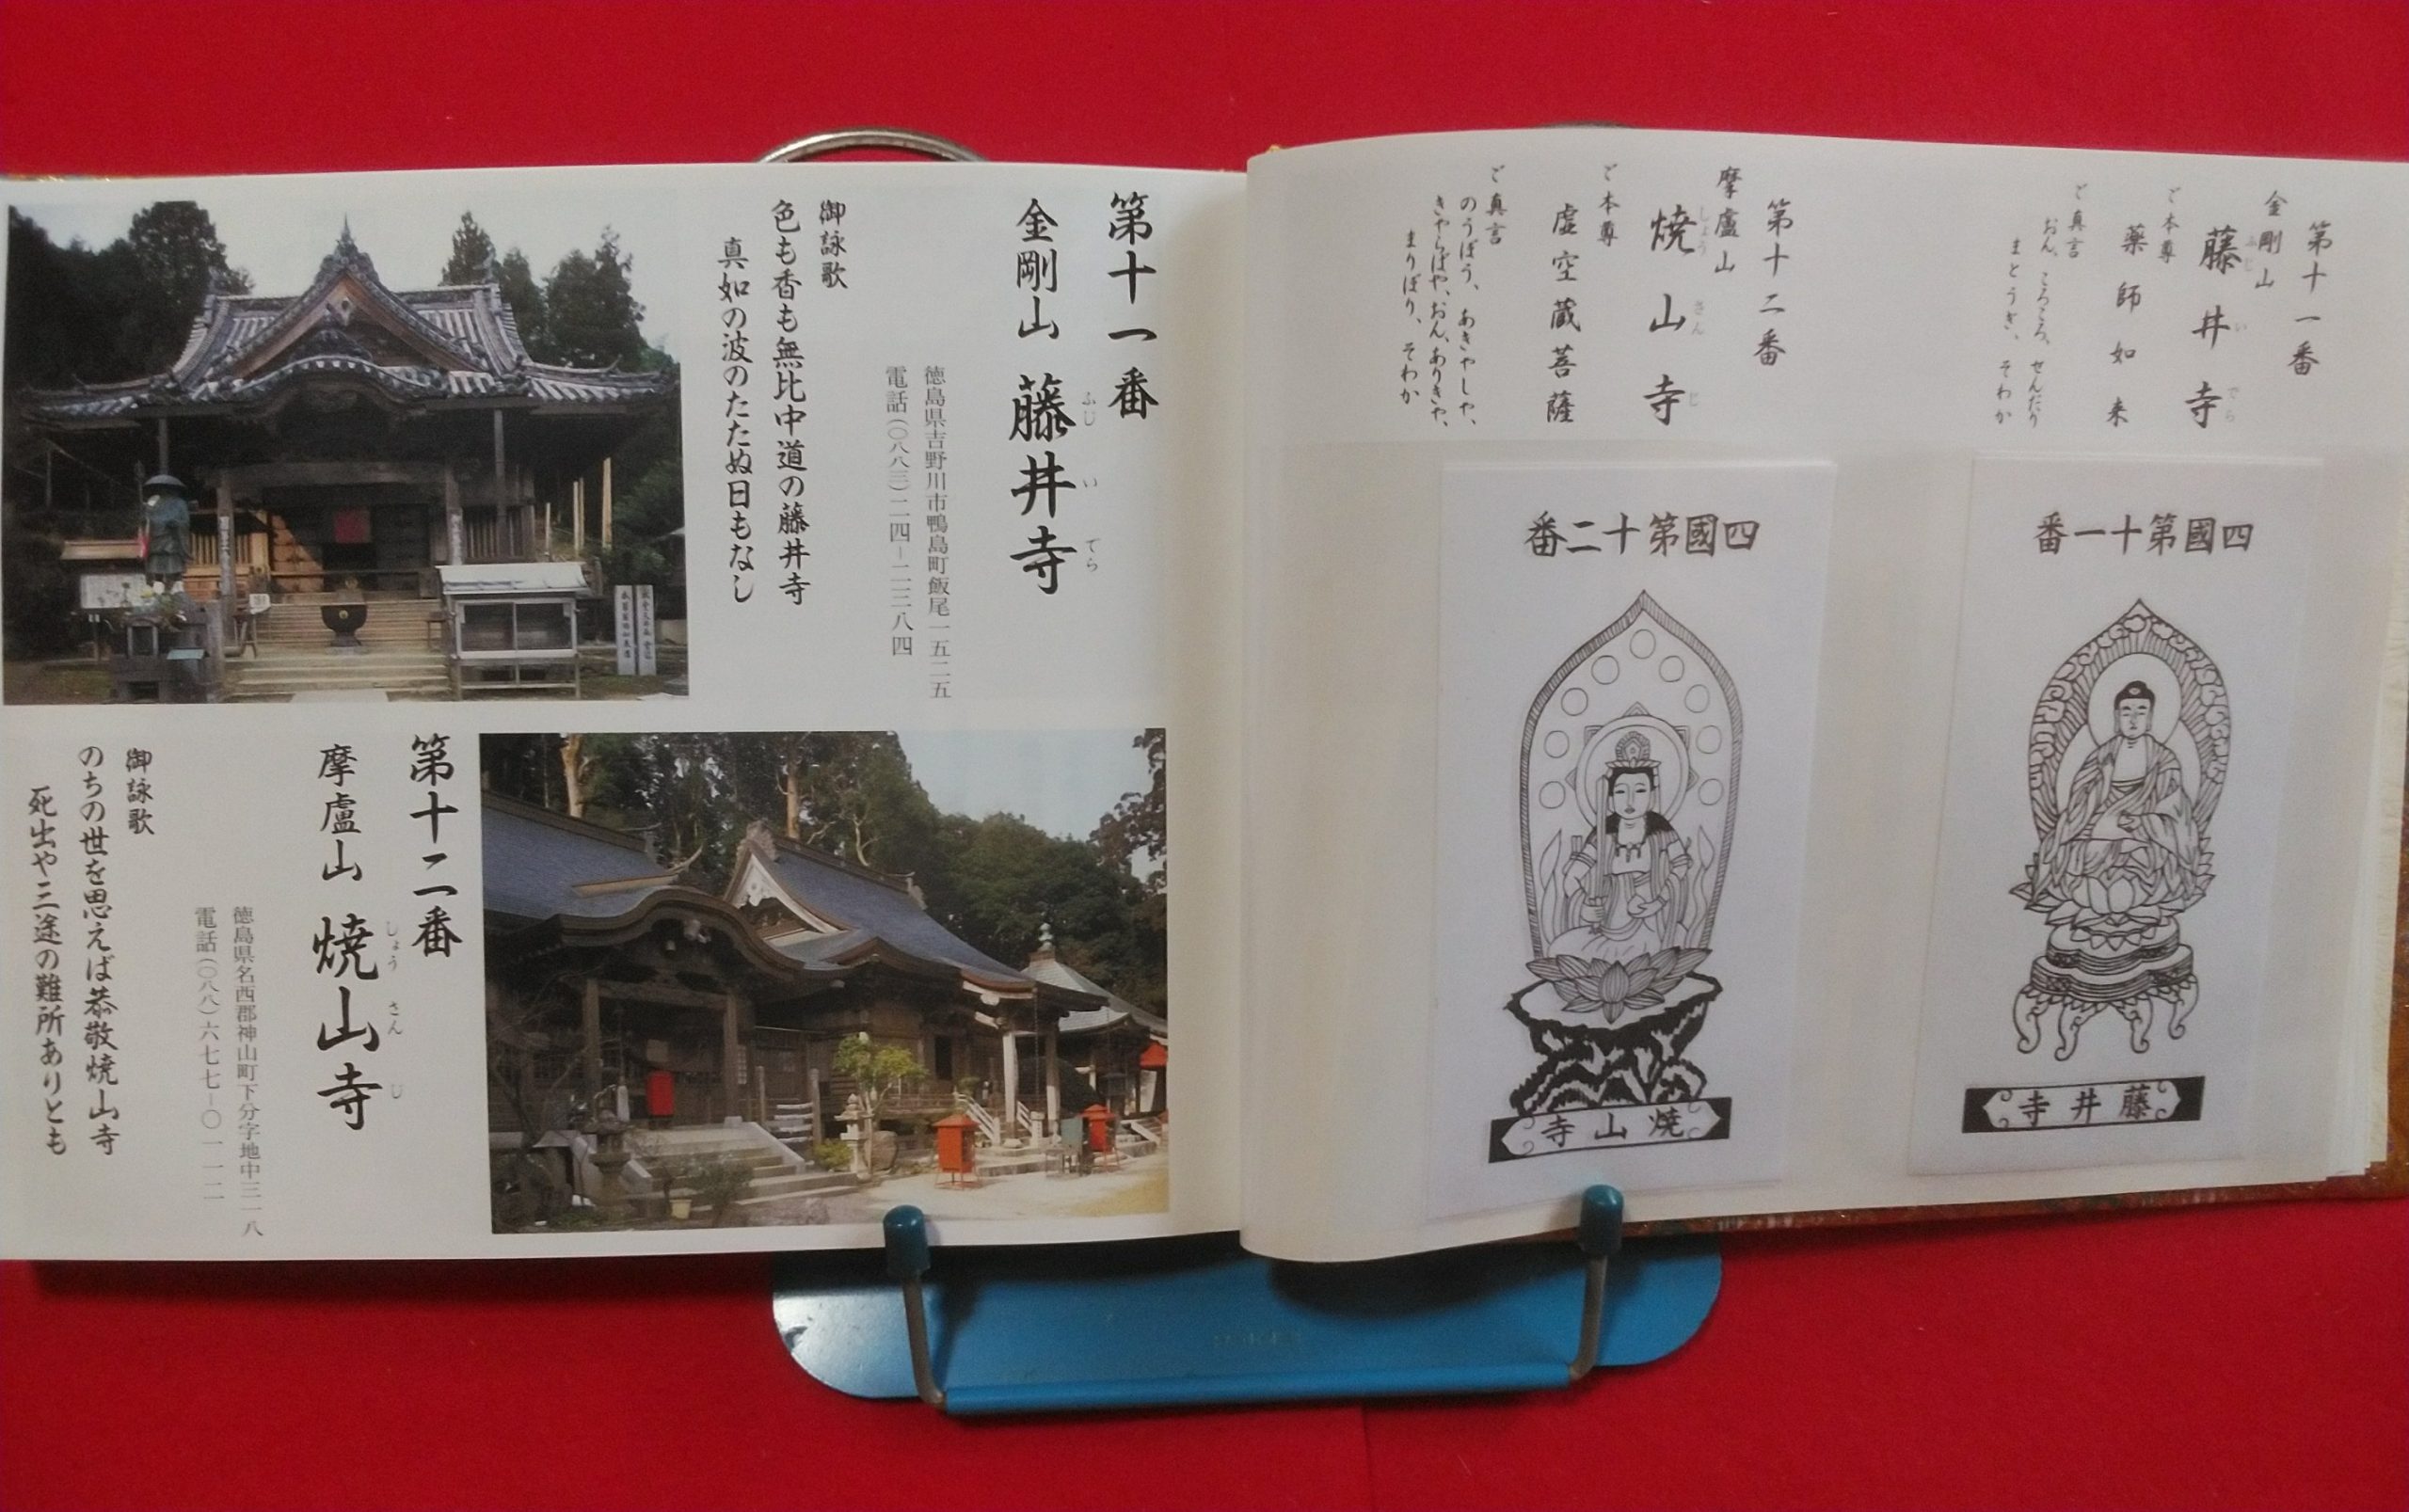 第十一番
金剛山 藤井寺
ふじ い でら
徳島県吉野川市鴨島町飯尾一五二五
電話(〇八八三)二四-二三八四
御詠歌
色も香も無比中道の藤井寺
真如の波のたたぬ日もなし
第十二番
摩盧山 焼山寺
しょう さん じ
徳島県名西郡神山町下分字地中三一八
電話(〇八八)六七七-〇一一二
御詠歌
のちの世を思えば恭敬焼山寺
死出や三途の難所ありとも
第十一番
金剛山
藤井寺
ふじ い でら
ご本尊
薬師如来
ご真言
おん、ころころ、せんだり
まとうぎ、そわか
第十二番
摩盧山
焼山寺
しょう さん じ
ご本尊
虚空蔵菩薩
ご真言
のうぼう、あきゃしゃ、
きゃらばや、おん、ありきゃ、
まりぼり、そわか
番一十第國四
寺井藤
番二十第國四
寺山焼